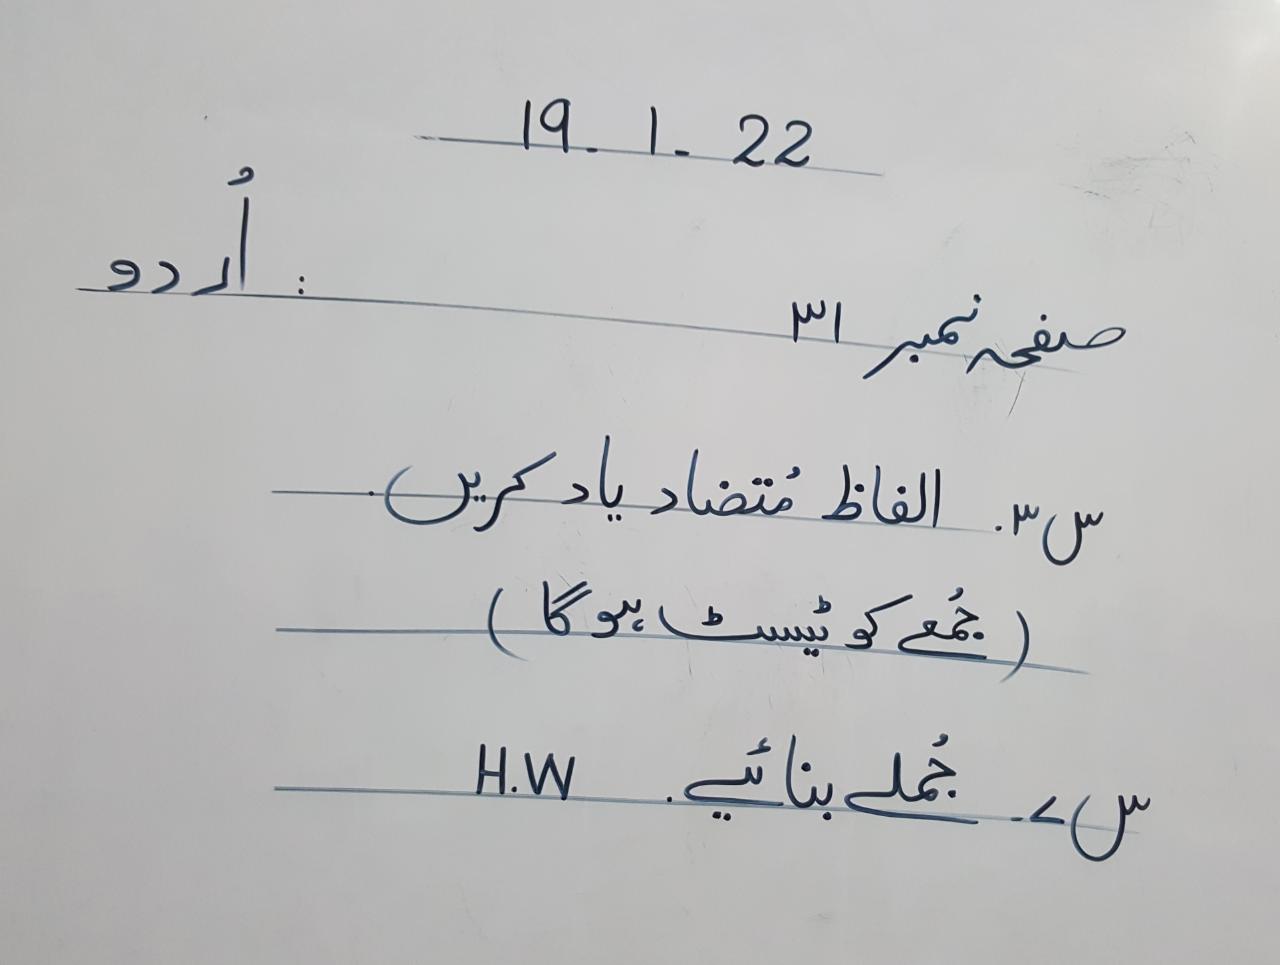 19. 1. 22
اُردو :
صفحہ نمبر ۳۱
س۳. الفاظ مُتضاد یاد کریں.
(جُمعے کو ٹیسٹ ہوگا)
س۷. جُملے بنائیے. H.W